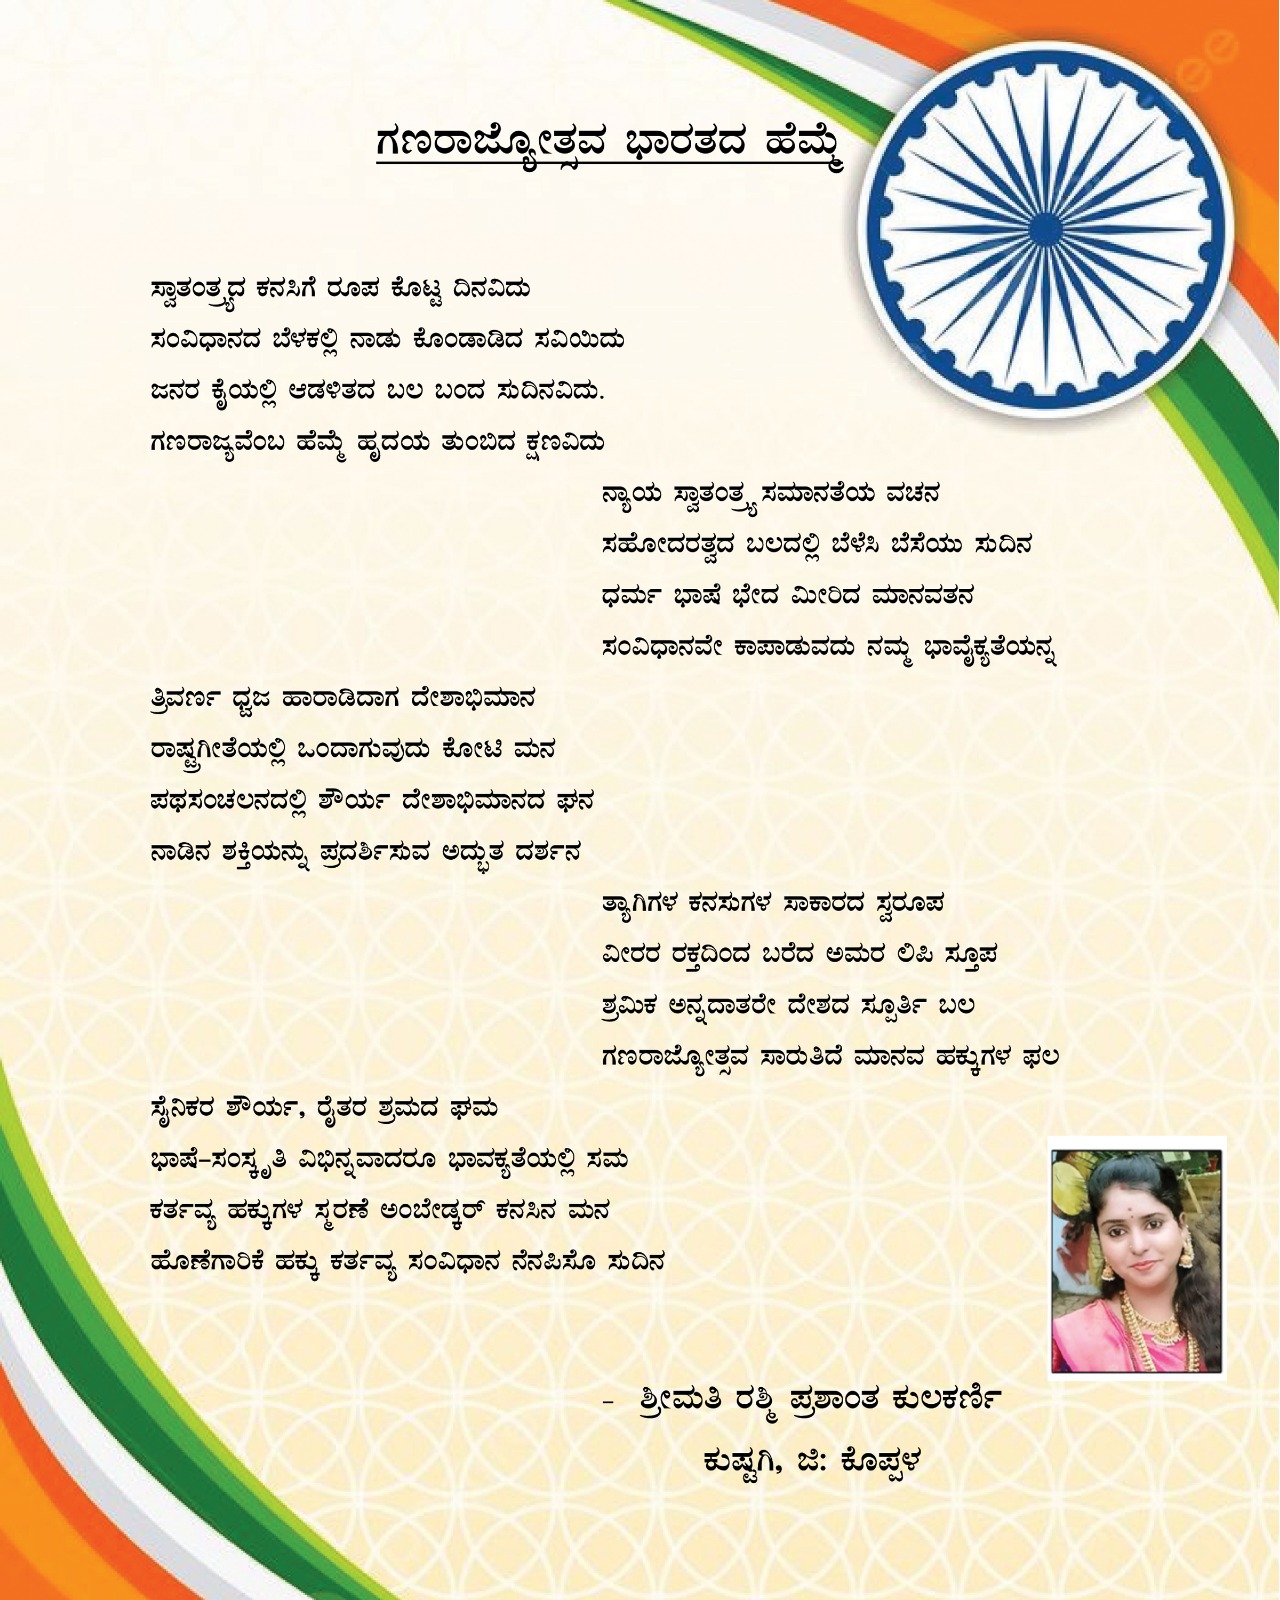 ಗಣರಾಜ್ಯೋತ್ಸವ ಭಾರತದ ಹೆಮ್ಮೆ
ಸ್ವಾತಂತ್ರ್ಯದ ಕನಸಿಗೆ ರೂಪ ಕೊಟ್ಟ ದಿನವಿದು
ಸಂವಿಧಾನದ ಬೆಳಕಲ್ಲಿ ನಾಡು ಕೊಂಡಾಡಿದ ಸವಿಯಿದು
ಜನರ ಕೈಯಲ್ಲಿ ಆಡಳಿತದ ಬಲ ಬಂದ ಸುದಿನವಿದು.
ಗಣರಾಜ್ಯವೆಂಬ ಹೆಮ್ಮೆ ಹೃದಯ ತುಂಬಿದ ಕ್ಷಣವಿದು
ನ್ಯಾಯ ಸ್ವಾತಂತ್ರ್ಯ ಸಮಾನತೆಯ ವಚನ
ಸಹೋದರತ್ವದ ಬಲದಲ್ಲಿ ಬೆಳೆಸಿ ಬೆಸೆಯು ಸುದಿನ
ಧರ್ಮ ಭಾಷೆ ಭೇದ ಮೀರಿದ ಮಾನವತನ
ಸಂವಿಧಾನವೇ ಕಾಪಾಡುವದು ನಮ್ಮ ಭಾವೈಕ್ಯತೆಯನ್ನ
ತ್ರಿವರ್ಣ ಧ್ವಜ ಹಾರಾಡಿದಾಗ ದೇಶಾಭಿಮಾನ
ರಾಷ್ಟ್ರಗೀತೆಯಲ್ಲಿ ಒಂದಾಗುವುದು ಕೋಟಿ ಮನ
ಪಥಸಂಚಲನದಲ್ಲಿ ಶೌರ್ಯ ದೇಶಾಭಿಮಾನದ ಘನ
ನಾಡಿನ ಶಕ್ತಿಯನ್ನು ಪ್ರದರ್ಶಿಸುವ ಅದ್ಭುತ ದರ್ಶನ
ತ್ಯಾಗಿಗಳ ಕನಸುಗಳ ಸಾಕಾರದ ಸ್ವರೂಪ
ವೀರರ ರಕ್ತದಿಂದ ಬರೆದ ಅಮರ ಲಿಪಿ ಸ್ತೂಪ
ಶ್ರಮಿಕ ಅನ್ನದಾತರೇ ದೇಶದ ಸ್ಪೂರ್ತಿ ಬಲ
ಗಣರಾಜ್ಯೋತ್ಸವ ಸಾರುತಿದೆ ಮಾನವ ಹಕ್ಕುಗಳ ಫಲ
ಸೈನಿಕರ ಶೌರ್ಯ, ರೈತರ ಶ್ರಮದ ಘಮ
ಭಾಷೆ-ಸಂಸ್ಕೃತಿ ವಿಭಿನ್ನವಾದರೂ ಭಾವಕ್ಯತೆಯಲ್ಲಿ ಸಮ
ಕರ್ತವ್ಯ ಹಕ್ಕುಗಳ ಸ್ಮರಣೆ ಅಂಬೇಡ್ಕರ್ ಕನಸಿನ ಮನ
ಹೊಣೆಗಾರಿಕೆ ಹಕ್ಕು ಕರ್ತವ್ಯ ಸಂವಿಧಾನ ನೆನಪಿಸೊ ಸುದಿನ
- ಶ್ರೀಮತಿ ರಶ್ಮಿ ಪ್ರಶಾಂತ ಕುಲಕರ್ಣಿ
ಕುಷ್ಟಗಿ, ಜಿ: ಕೊಪ್ಪಳ